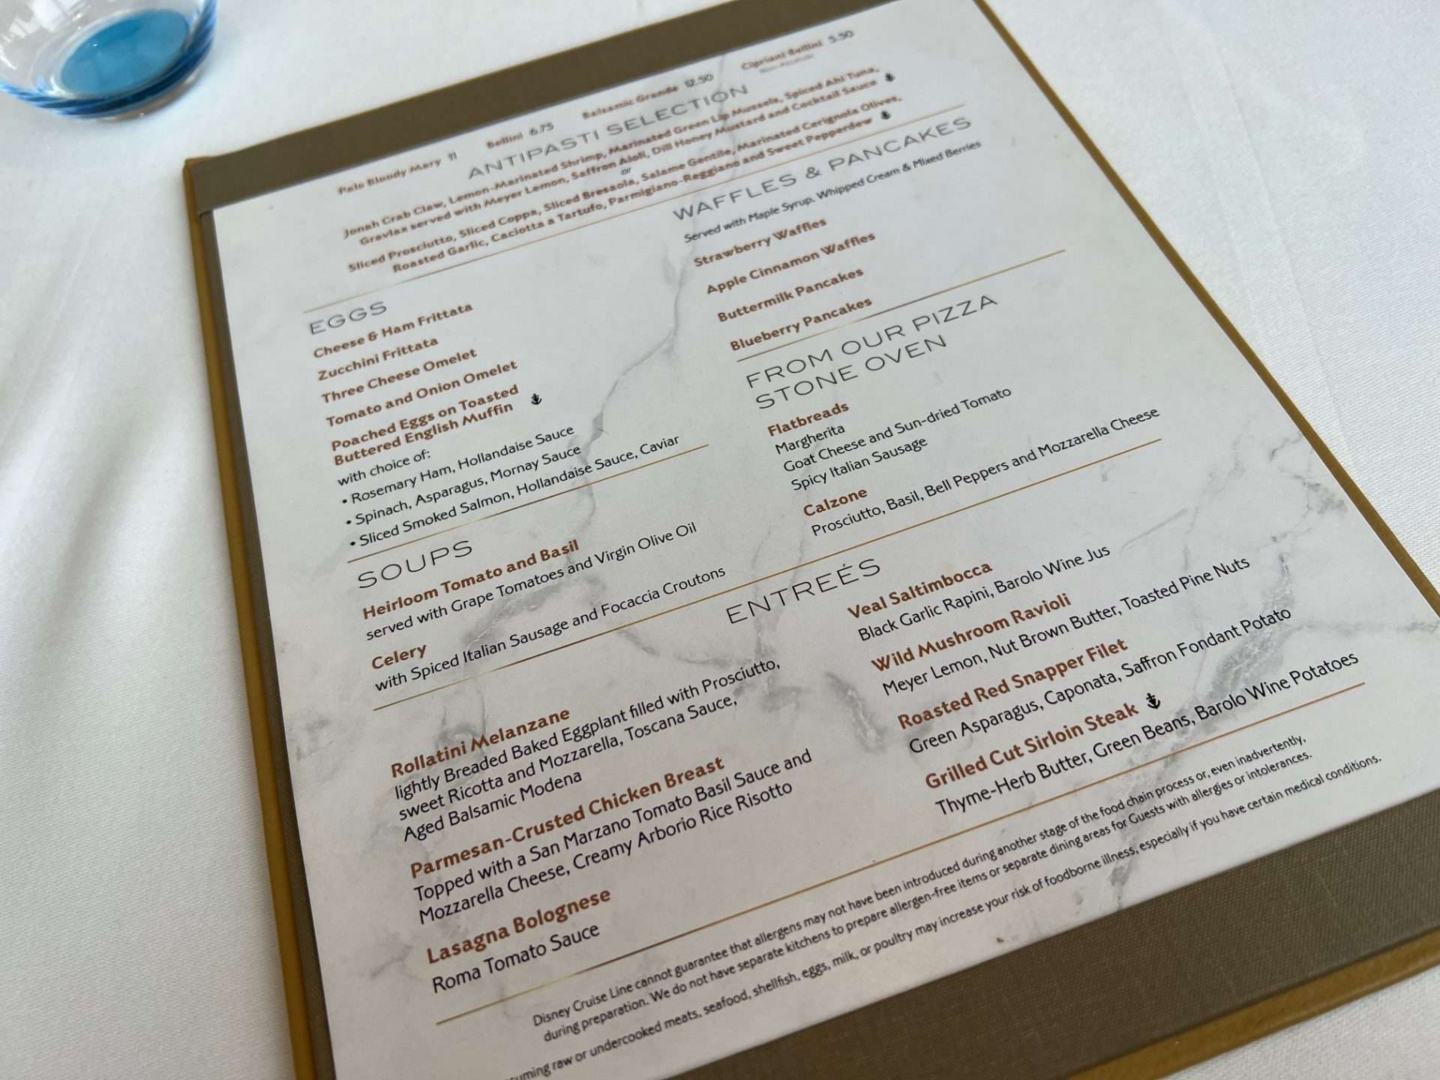 Palo Bloody Mary 11 Bellini 6.75 Balsamic Grande 12.50 Cipriani Bellini 5.50
Non-Alcoholic
ANTIPASTI SELECTION
Jonah Crab Claw, Lemon-Marinated Shrimp, Marinated Green Lip Mussels, Spiced Ahi Tuna,
Gravlax served with Meyer Lemon, Saffron Aioli, Dill Honey Mustard and Cocktail Sauce
or
Sliced Prosciutto, Sliced Coppa, Sliced Bresaola, Salame Gentile, Marinated Cerignola Olives,
Roasted Garlic, Caciotta a Tartufo, Parmigiano-Reggiano and Sweet Pepperdew
EGGS
Cheese & Ham Frittata
Zucchini Frittata
Three Cheese Omelet
Tomato and Onion Omelet
Poached Eggs on Toasted
Buttered English Muffin
with choice of:
• Rosemary Ham, Hollandaise Sauce
• Spinach, Asparagus, Mornay Sauce
• Sliced Smoked Salmon, Hollandaise Sauce, Caviar
SOUPS
Heirloom Tomato and Basil
served with Grape Tomatoes and Virgin Olive Oil
Celery
with Spiced Italian Sausage and Focaccia Croutons
WAFFLES & PANCAKES
Served with Maple Syrup, Whipped Cream & Mixed Berries
Strawberry Waffles
Apple Cinnamon Waffles
Buttermilk Pancakes
Blueberry Pancakes
FROM OUR PIZZA
STONE OVEN
Flatbreads
Margherita
Goat Cheese and Sun-dried Tomato
Spicy Italian Sausage
Calzone
Prosciutto, Basil, Bell Peppers and Mozzarella Cheese
ENTREÉS
Rollatini Melanzane
lightly Breaded Baked Eggplant filled with Prosciutto,
sweet Ricotta and Mozzarella, Toscana Sauce,
Aged Balsamic Modena
Parmesan-Crusted Chicken Breast
Topped with a San Marzano Tomato Basil Sauce and
Mozzarella Cheese, Creamy Arborio Rice Risotto
Lasagna Bolognese
Roma Tomato Sauce
Veal Saltimbocca
Black Garlic Rapini, Barolo Wine Jus
Wild Mushroom Ravioli
Meyer Lemon, Nut Brown Butter, Toasted Pine Nuts
Roasted Red Snapper Filet
Green Asparagus, Caponata, Saffron Fondant Potato
Grilled Cut Sirloin Steak
Thyme-Herb Butter, Green Beans, Barolo Wine Potatoes
Disney Cruise Line cannot guarantee that allergens may not have been introduced during another stage of the food chain process or, even inadvertently,
during preparation. We do not have separate kitchens to prepare allergen-free items or separate dining areas for Guests with allergies or intolerances.
uming raw or undercooked meats, seafood, shellfish, eggs, milk, or poultry may increase your risk of foodborne illness, especially if you have certain medical conditions.